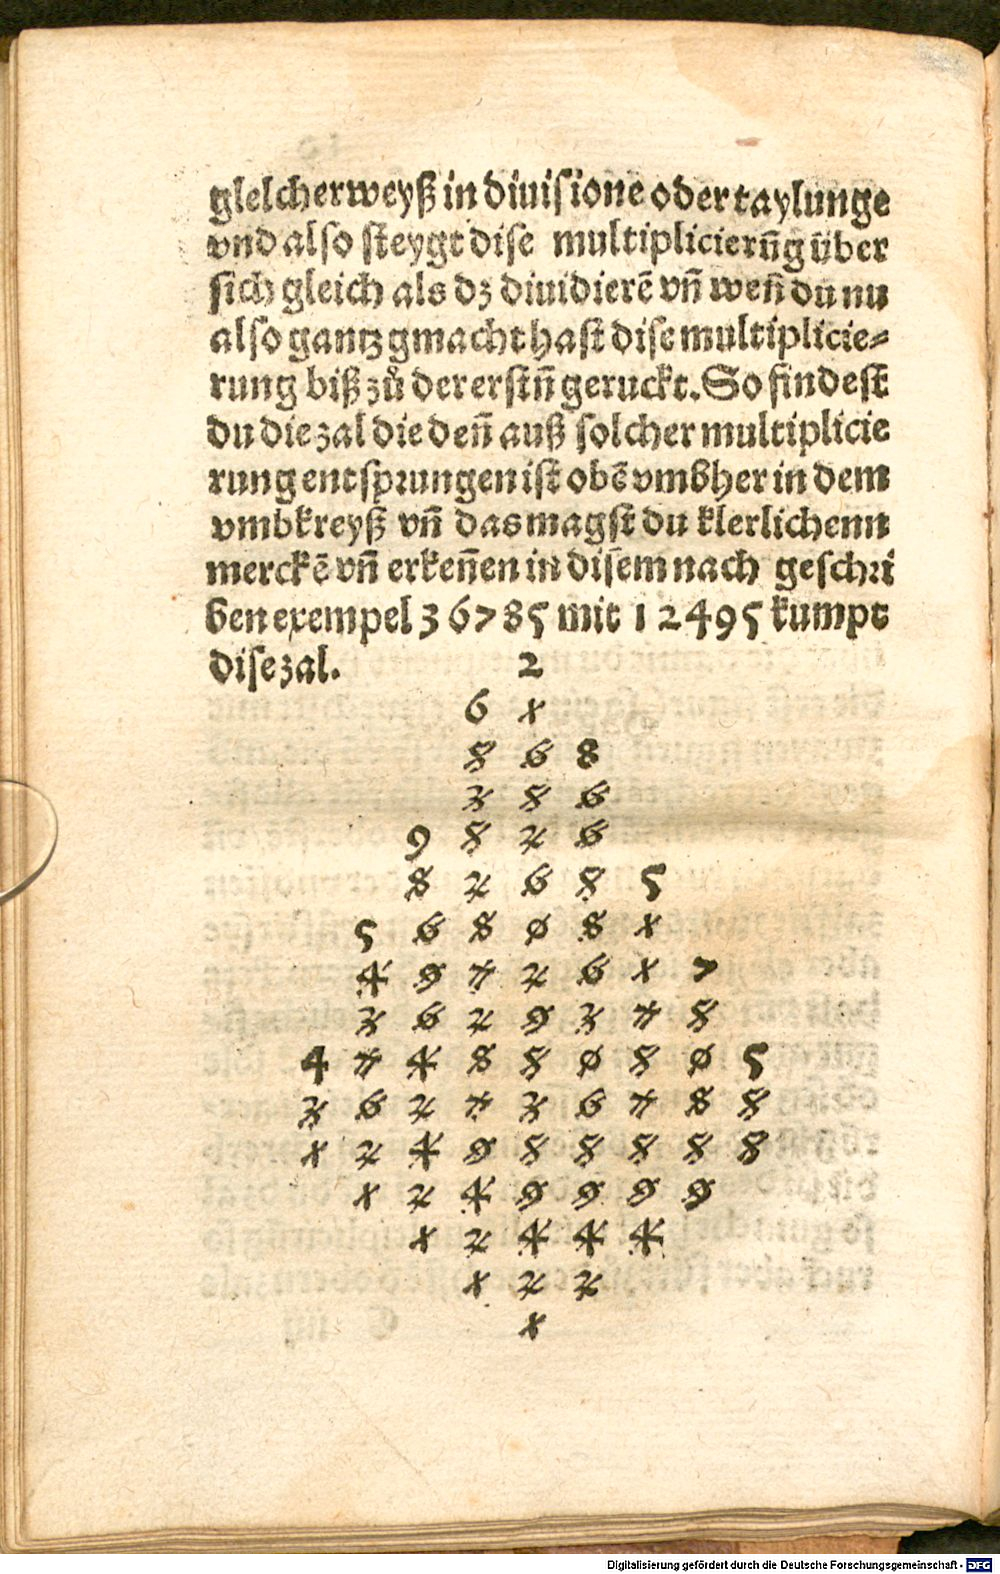 glelcherweyß in diuisione oder taylunge
vnd also steygt dise multiplicierūg über
sich gleich als dz diuidierē vn̄ wen̄ du nu
also gantz gmacht hast dise multiplicie⸗
rung biß zů der erstn̄ geruckt. So findest
du die zal die den̄ auß solcher multiplicie
rung entsprungen ist obē vmbher in dem
vmbkreyß vn̄ das magst du klerlichenn
merckē vn̄ erken̄en in disem nach geschri
ben exempel 36785 mit 12495 kumpt
dise zal. 2
6 1
5 6 8
3 5 6
9 5 2 6
8 2 6 5 5
5 6 8 0 8 1
4 9 7 2 6 1 7
3 6 2 9 3 7 5
4 7 4 8 5 0 5 0 5
3 6 2 7 3 6 7 8 5
1 2 4 9 5 5 5 5 5
1 2 4 9 9 9 9
1 2 4 4 4
1 2 2
1
Digitalisierung gefördert durch die Deutsche Forschungsgemeinschaft - DFG